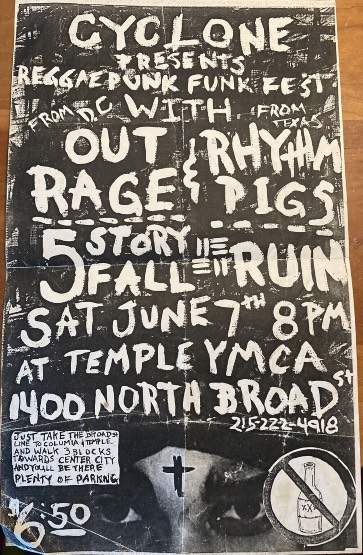 CYCLONE
PRESENTS
REGGAE PUNK FUNK FEST
FROM DC WITH FROM TEXAS
OUT RAGE & RHYTHM PIGS
5 STORY FALL RUIN
SAT JUNE 7TH 8PM
AT TEMPLE YMCA
1400 NORTH BROAD ST
215-222-4918
JUST TAKE THE BROAD ST
LINE TO COLUMIA & TEMPLE
AND WALK 3 BLOCKS
TOWARDS CENTER CITY
AND YOU'LL BE THERE
PLENTY OF PARKING
XX
$6.50